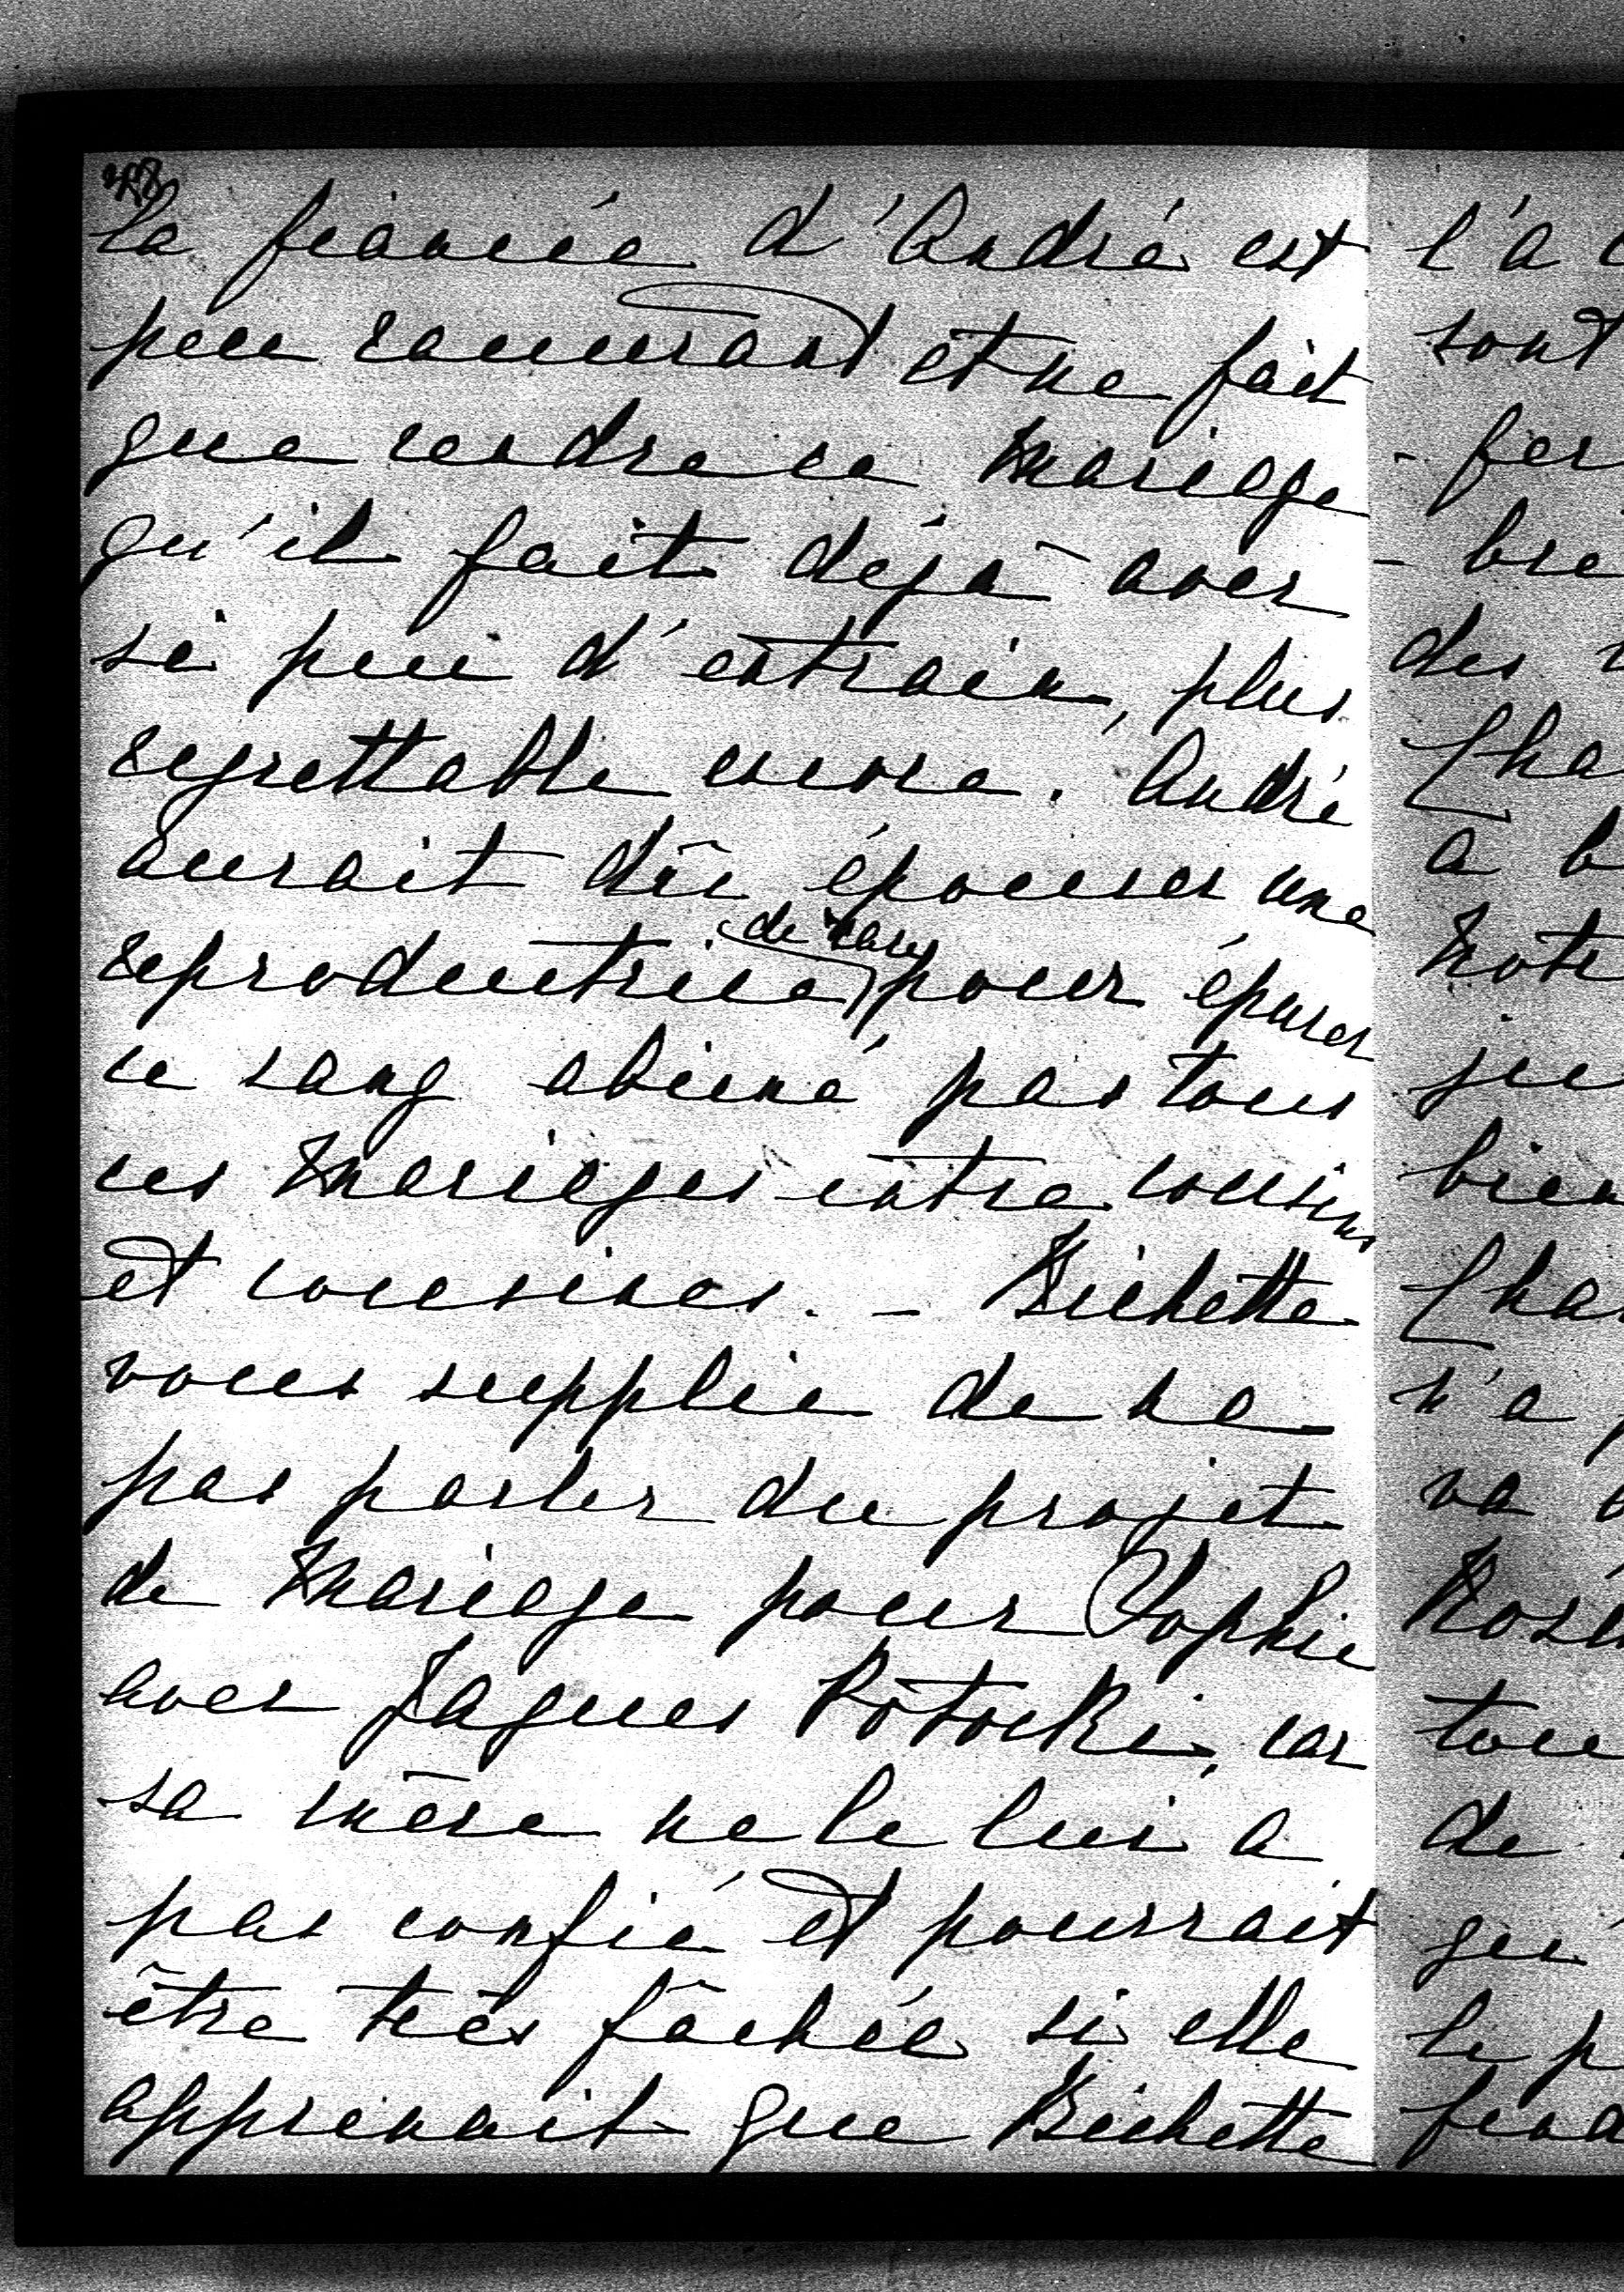 la fiancée d'André est
peu rassurant et ne fait
que rendre ce mariage
qu'il fait déjà avec
si peu d'entrain, plus
regrettable encore. André
aurait dû épouser une
reproductrice de race pour épurer
ce sang abîmé par tous
ces mariages entre cousins
et cousines. - Bichette
vous supplie de ne
pas parler du projet
de mariage pour Sophie
avec Jaques Potocki, car
sa mère ne le lui a
pas confié et pourrait
être très fâchée si elle
apprenait que Bichette
l'a
sont
des
Cha
a b
note
bien
Cha
n'a
va
de
le p